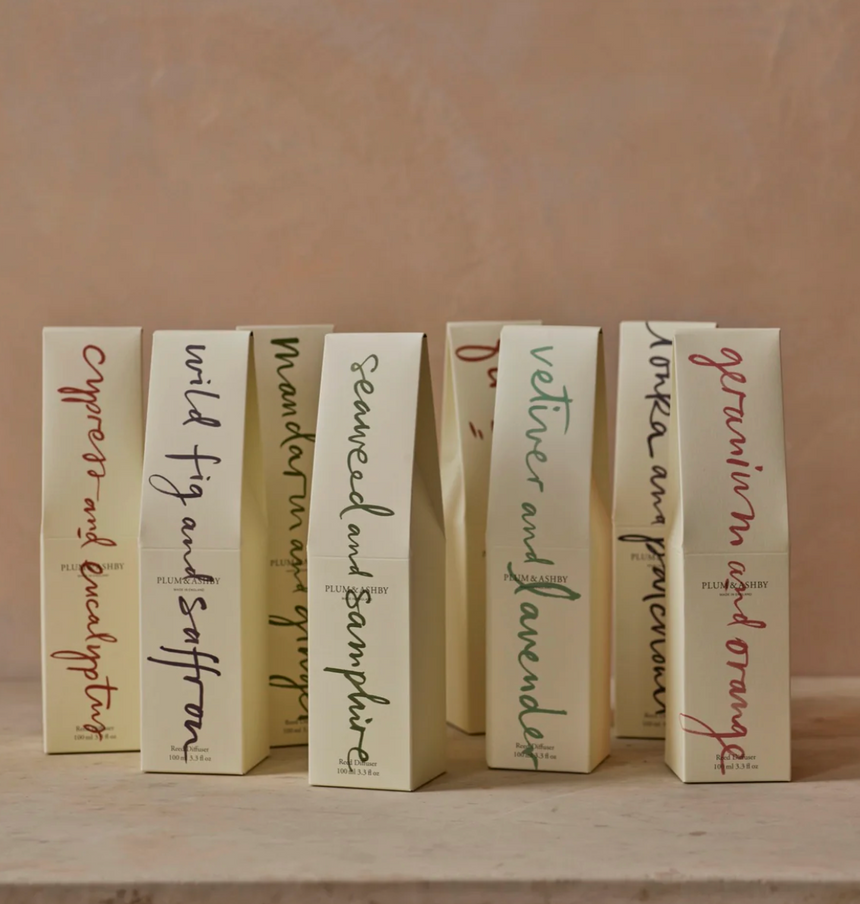 cypress and eucalyptus
PLUM & ASHBY
Reed Diffuser
100 ml 3.3 fl oz
wild fig and saffron
PLUM & ASHBY
MADE IN ENGLAND
Reed Diffuser
100 ml 3.3 fl oz
mandarin and ginger
seaweed and samphire
PLUM & ASHBY
Reed Diffuser
100 ml 3.3 fl oz
vetiver and lavender
PLUM & ASHBY
Reed Diffuser
100 ml 3.3 fl oz
tonka and patchouli
geranium and orange
PLUM & ASHBY
Reed Diffuser
100 ml 3.3 fl oz